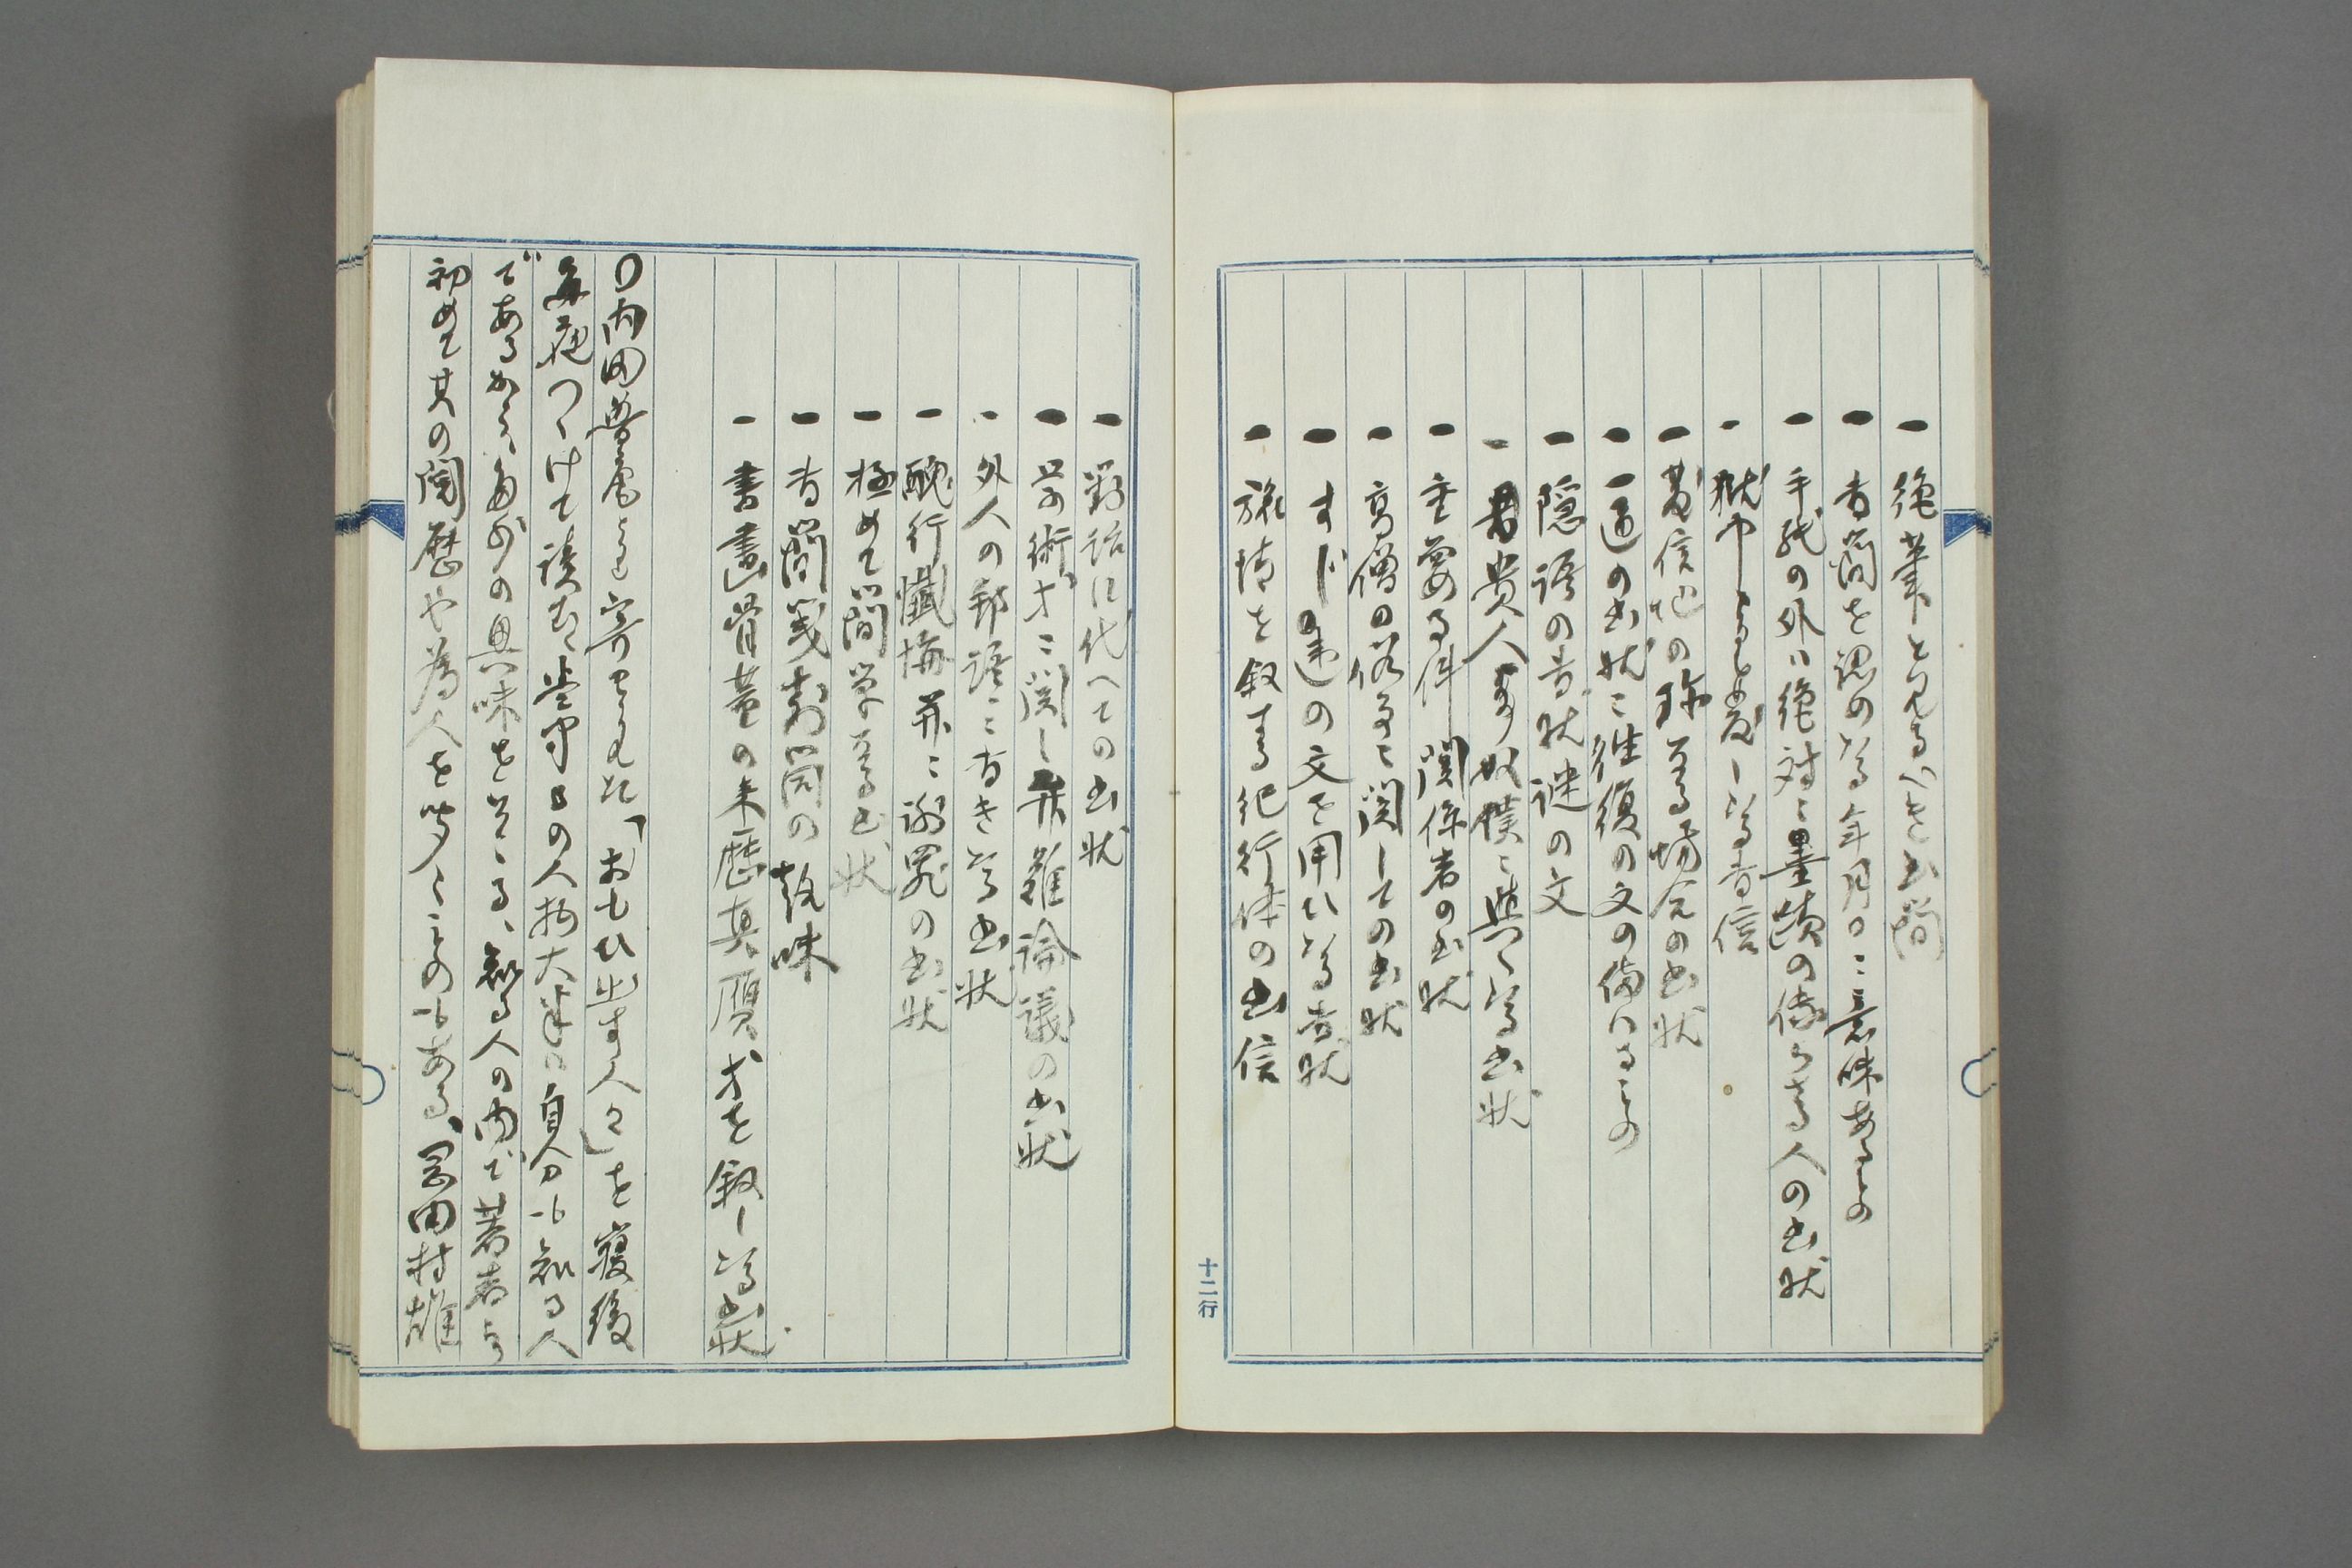 一 絶筆と見るべき書簡
一 書簡を認めたる年月日に意味あるもの
一 手紙の外は絶対に墨蹟の伝らざる人の書状
一 獄中より発したる書信
一 発信地の珍なる場合の書状
一 一通の書状に往復の文の備はるもの
一 隠語の書状謎の文
一 貴人奴僕に与へたる書状
一 重要事件関係者の書状
一 高僧の俗事に関しての書状
一 すじ違の文を用ひたる書状
一 旅情を叙する紀行体の書信
十二行
一 対話に代へての書状
一 芸術才に関し弁難論議の書状
一 外人の邦語に書きたる書状
一 醜行懺悔并に謝罪の書状
一 極めて簡単なる書状
一 書簡箋封筒の趣味
一 書画骨董の来歴真贋才を叙したる書状
〇内田魯庵から寄せられた「おもひ出す人々」を寝後
毎夜つゞけて読む、半分の人物は自分も知る人
であるから、多少の興味をそゝる、知る人の内で著者より
初めて其の閲歴や為人を聞くものもある、岡田村雄